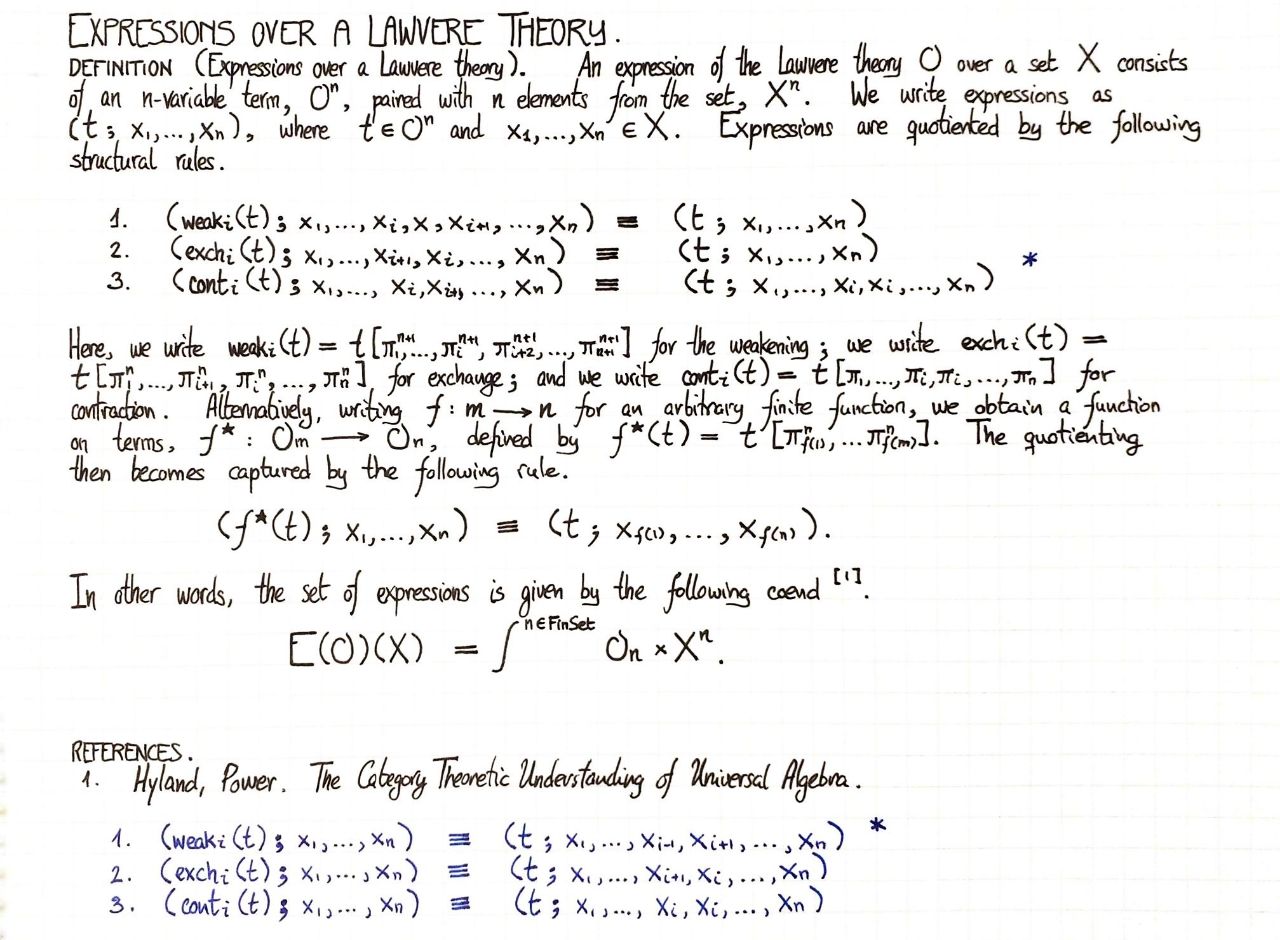 EXPRESSIONS OVER A LAWVERE THEORY.
DEFINITION (Expressions over a Lawvere theory). An expression of the Lawvere theory O over a set X consists
of an n-variable term, Oⁿ, paired with n elements from the set, Xⁿ. We write expressions as
(t; x₁,...,xₙ), where t ∈ Oⁿ and x₁,...,xₙ ∈ X. Expressions are quotiented by the following
structural rules.
1. (weakᵢ(t); x₁,..., xᵢ, x, xᵢ₊₁, ..., xₙ) ≡ (t; x₁,...,xₙ)
2. (exchᵢ(t); x₁,..., xᵢ₊₁, xᵢ,..., xₙ) ≡ (t; x₁,...,xₙ) *
3. (contᵢ(t); x₁,..., xᵢ, xᵢ₊₁, ..., xₙ) ≡ (t; x₁,..., xᵢ, xᵢ,..., xₙ)
Here, we write weakᵢ(t) = t[π₁ⁿ⁺¹,..., πᵢⁿ⁺¹, πᵢ₊₂ⁿ⁺¹,..., πₙ₊₁ⁿ⁺¹] for the weakening; we write exchᵢ(t) =
t[π₁ⁿ,..., πᵢ₊₁ⁿ, πᵢⁿ, ..., πₙⁿ] for exchange; and we write contᵢ(t) = t[π₁,..., πᵢ, πᵢ,..., πₙ] for
contraction. Alternatively, writing f : m → n for an arbitrary finite function, we obtain a function
on terms, f* : Oₘ → Oₙ, defined by f*(t) = t[πⁿ_f(1), ... πⁿ_f(m)]. The quotienting
then becomes captured by the following rule.
(f*(t); x₁,...,xₙ) ≡ (t; x_f(1), ..., x_f(n)).
In other words, the set of expressions is given by the following coend [1].
E(O)(X) = ∫^{n∈FinSet} Oₙ × Xⁿ.
REFERENCES.
1. Hyland, Power. The Category Theoretic Understanding of Universal Algebra.
1. (weakᵢ(t); x₁,..., xₙ) ≡ (t; x₁,..., xᵢ₋₁, xᵢ₊₁, ..., xₙ) *
2. (exchᵢ(t); x₁,..., xₙ) ≡ (t; x₁,..., xᵢ₊₁, xᵢ,..., xₙ)
3. (contᵢ(t); x₁,..., xₙ) ≡ (t; x₁,..., xᵢ, xᵢ,..., xₙ)